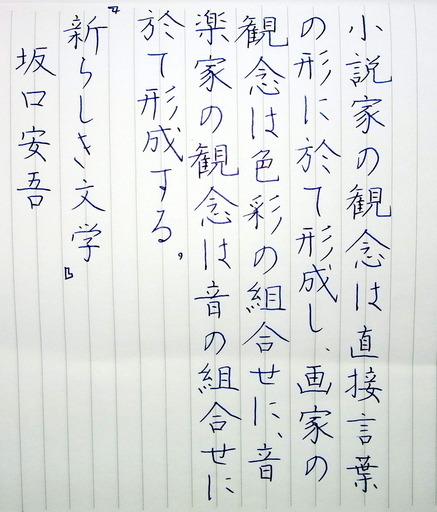 小説家の観念は直接言葉
の形に於て形成し、画家の
観念は色彩の組合せに、音
楽家の観念は音の組合せに
於て形成する。
『新らしき文学』
坂口安吾